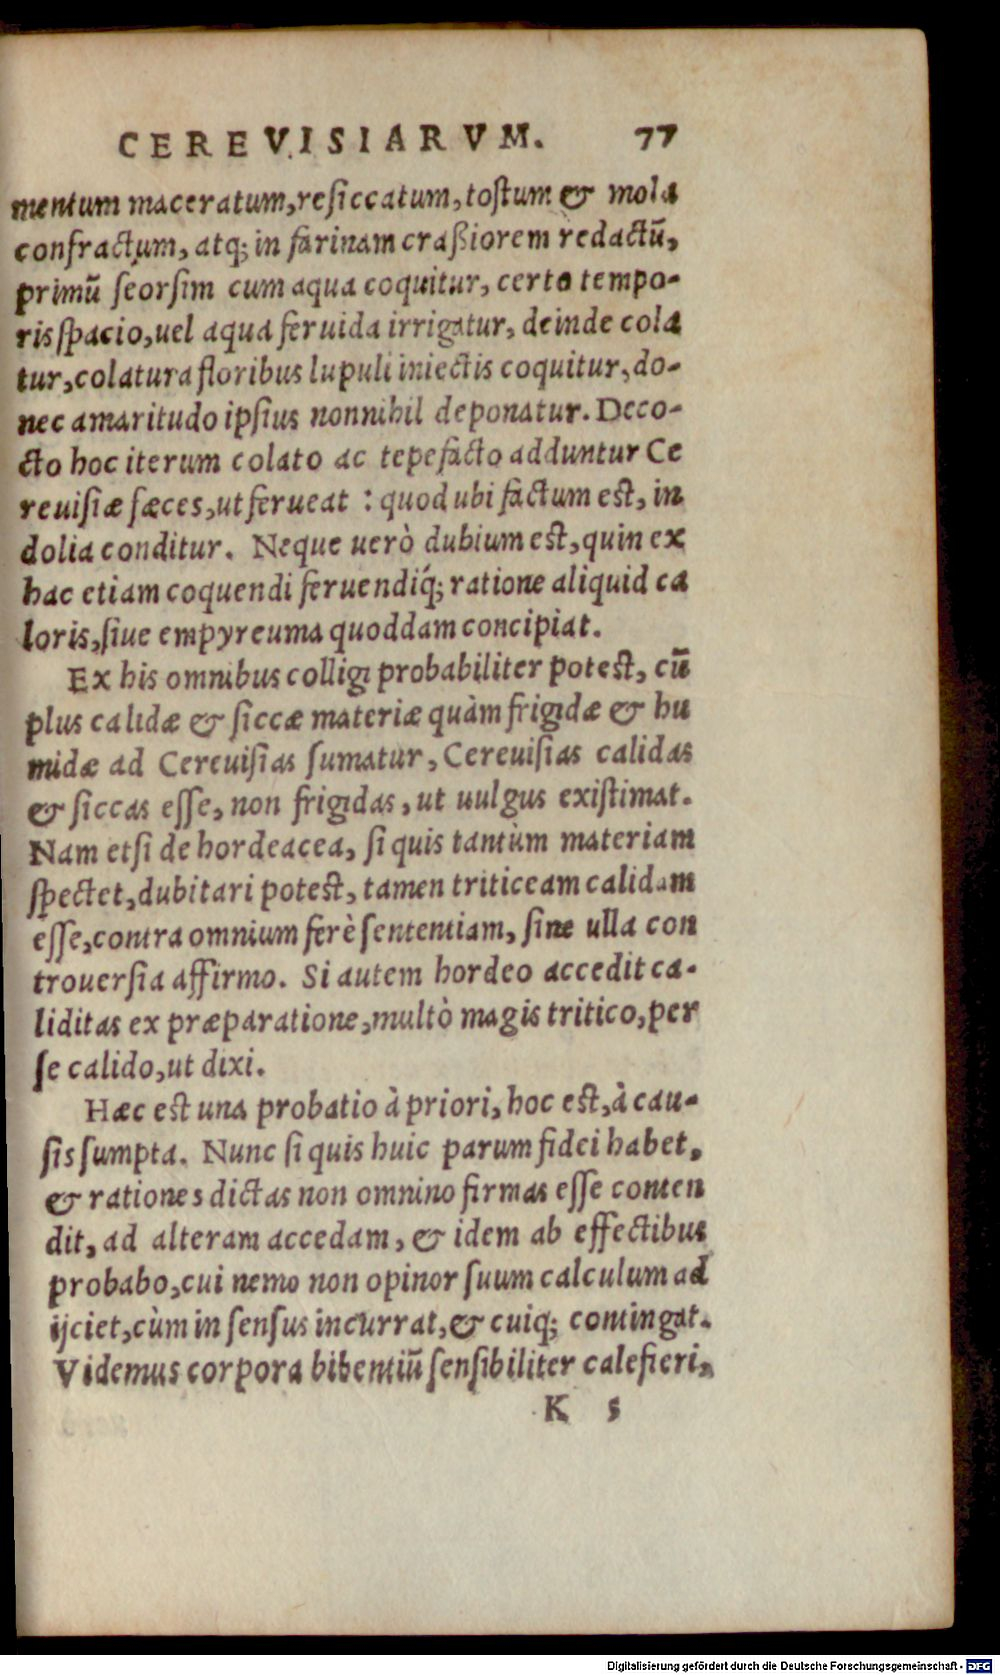 CEREVISIARVM. 77
mentum maceratum, resiccatum, tostum & mola
confractum, atq; in farinam craßiorem redactũ,
primũ seorsim cum aqua coquitur, certo tempo-
ris spacio, uel aqua feruida irrigatur, deinde cola
tur, colatura floribus lupuli iniectis coquitur, do-
nec amaritudo ipsius nonnihil deponatur. Deco-
cto hoc iterum colato ac tepefacto adduntur Ce
reuisiæ fæces, ut ferueat : quod ubi factum est, in
dolia conditur. Neque uerò dubium est, quin ex
hac etiam coquendi feruendiq́; ratione aliquid ca
loris, siue empyreuma quoddam concipiat.
Ex his omnibus colligi probabiliter potest, cũ
plus calidæ & siccæ materiæ quàm frigidæ & hu
midæ ad Cereuisias sumatur, Cereuisias calidas
& siccas esse, non frigidas, ut uulgus existimat.
Nam etsi de hordeacea, si quis tantùm materiam
spectet, dubitari potest, tamen triticeam calidam
esse, contra omnium ferè sententiam, sine ulla con
trouersia affirmo. Si autem hordeo accedit ca-
liditas ex præparatione, multò magis tritico, per
se calido, ut dixi.
Hæc est una probatio à priori, hoc est, à cau-
sis sumpta. Nunc si quis huic parum fidei habet,
& rationes dictas non omnino firmas esse conten
dit, ad alteram accedam, & idem ab effectibus
probabo, cui nemo non opinor suum calculum ad
ijciet, cùm in sensus incurrat, & cuiq; contingat.
Videmus corpora bibentiũ sensibiliter calefieri,
K 5
Digitalisierung gefördert durch die Deutsche Forschungsgemeinschaft - DFG